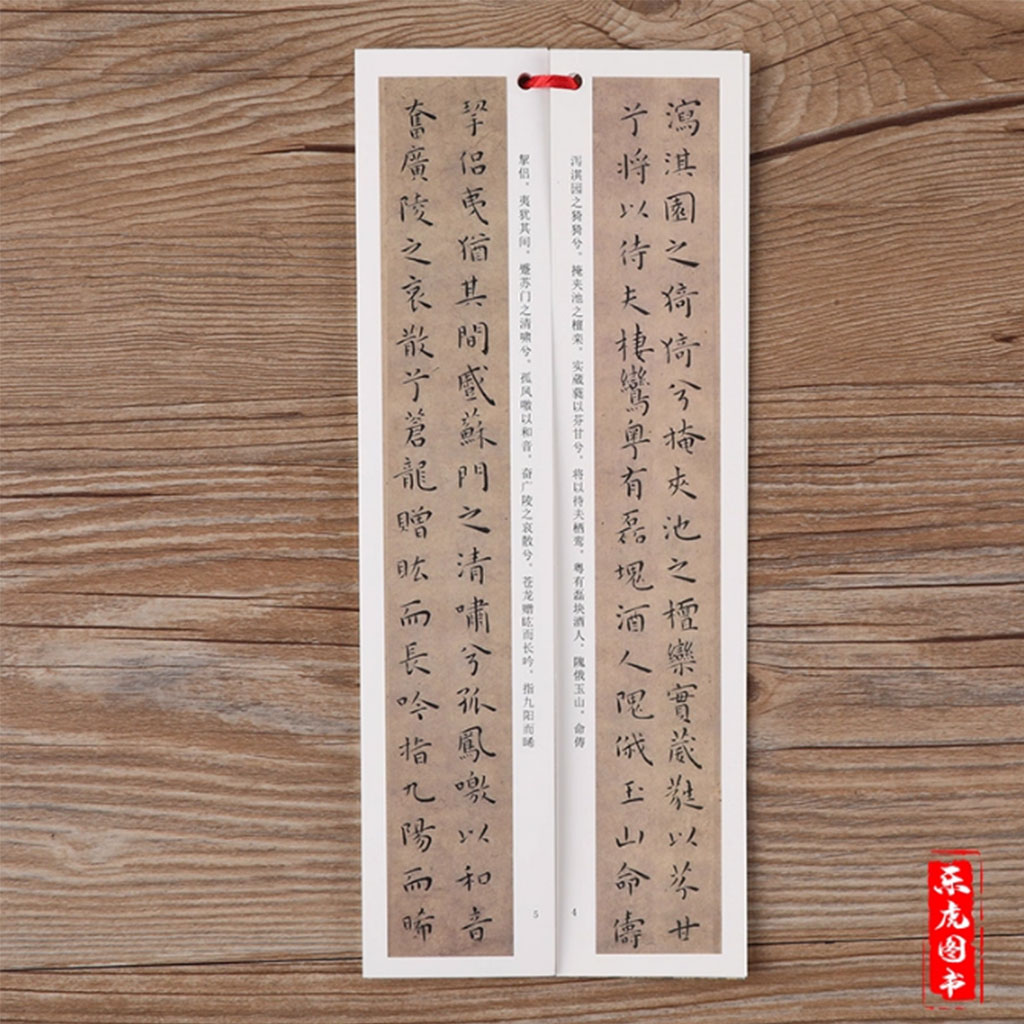 瀉淇園之猗猗兮掩夾池之檀欒實葳蕤以芬甘
兮将以待夫棲鸞粤有磊塊酒人隗俄玉山命儔
泻淇园之猗猗兮，掩夹池之檀栾，实葳蕤以芬甘兮，将以待夫栖鸾，粤有磊块酒人，隗俄玉山，命俦
4
挐侣，夷犹其间，蹙苏门之清啸兮，孤风噭以和音，奋广陵之哀散兮，苍龙赠眩而长吟，指九阳而晞
5
挐侶夷猶其間蹙蘇門之清嘯兮孤鳳噭以和音
奮廣陵之哀散兮蒼龍贈眩而長吟指九陽而晞
乐虎图书